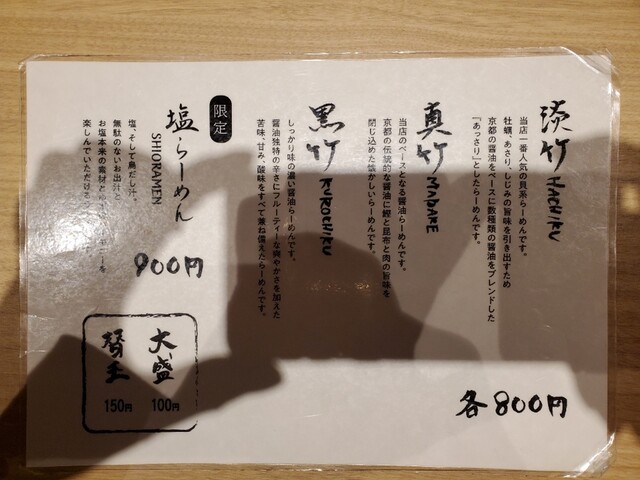 淡竹 HACHIKU
当店一番人気の貝系らーめんです。
牡蠣、あさり、しじみの旨味を引き出すため
京都の醤油をベースに数種類の醤油をブレンドした
「あっさり」としたらーめんです。
真竹 MADAKE
当店のベースとなる醤油らーめんです。
京都の伝統的な醤油に鰹と昆布と肉の旨味を
閉じ込めた懐かしいらーめんです。
黒竹 KUROCHIKU
しっかり味の濃い醤油らーめんです。
醤油独特の辛さにフルーティーな爽やかさを加えた
苦味、甘み、酸味をすべて兼ね備えたらーめんです。
各800円
限定
塩らーめん
SHIORAMEN
塩、そして鳥だし汁、
無駄のないお出汁と
お塩本来の素材と
を
楽しんでいただける
900円
大盛 100円
替玉 150円